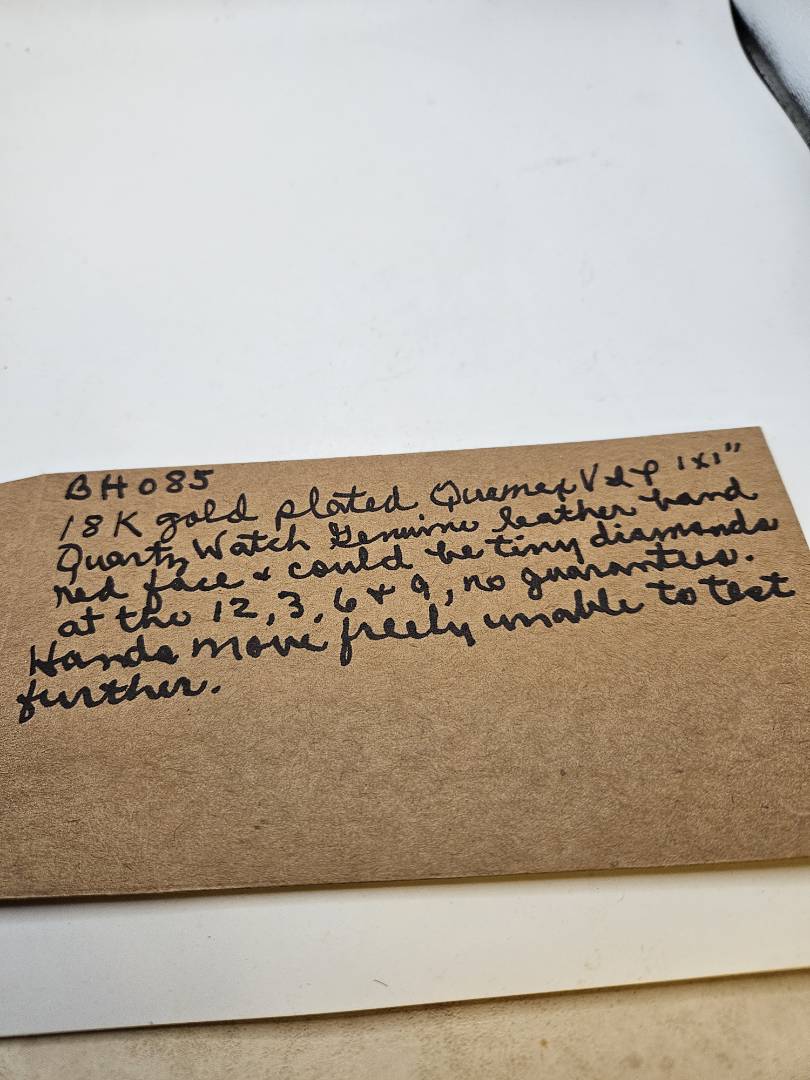 BH085
18K gold plated Quemex V&P 1x1"
Quartz Watch Genuine leather band
red face & could be tiny diamonds
at the 12, 3, 6 & 9, no guarantees.
Hands move freely unable to test
further.